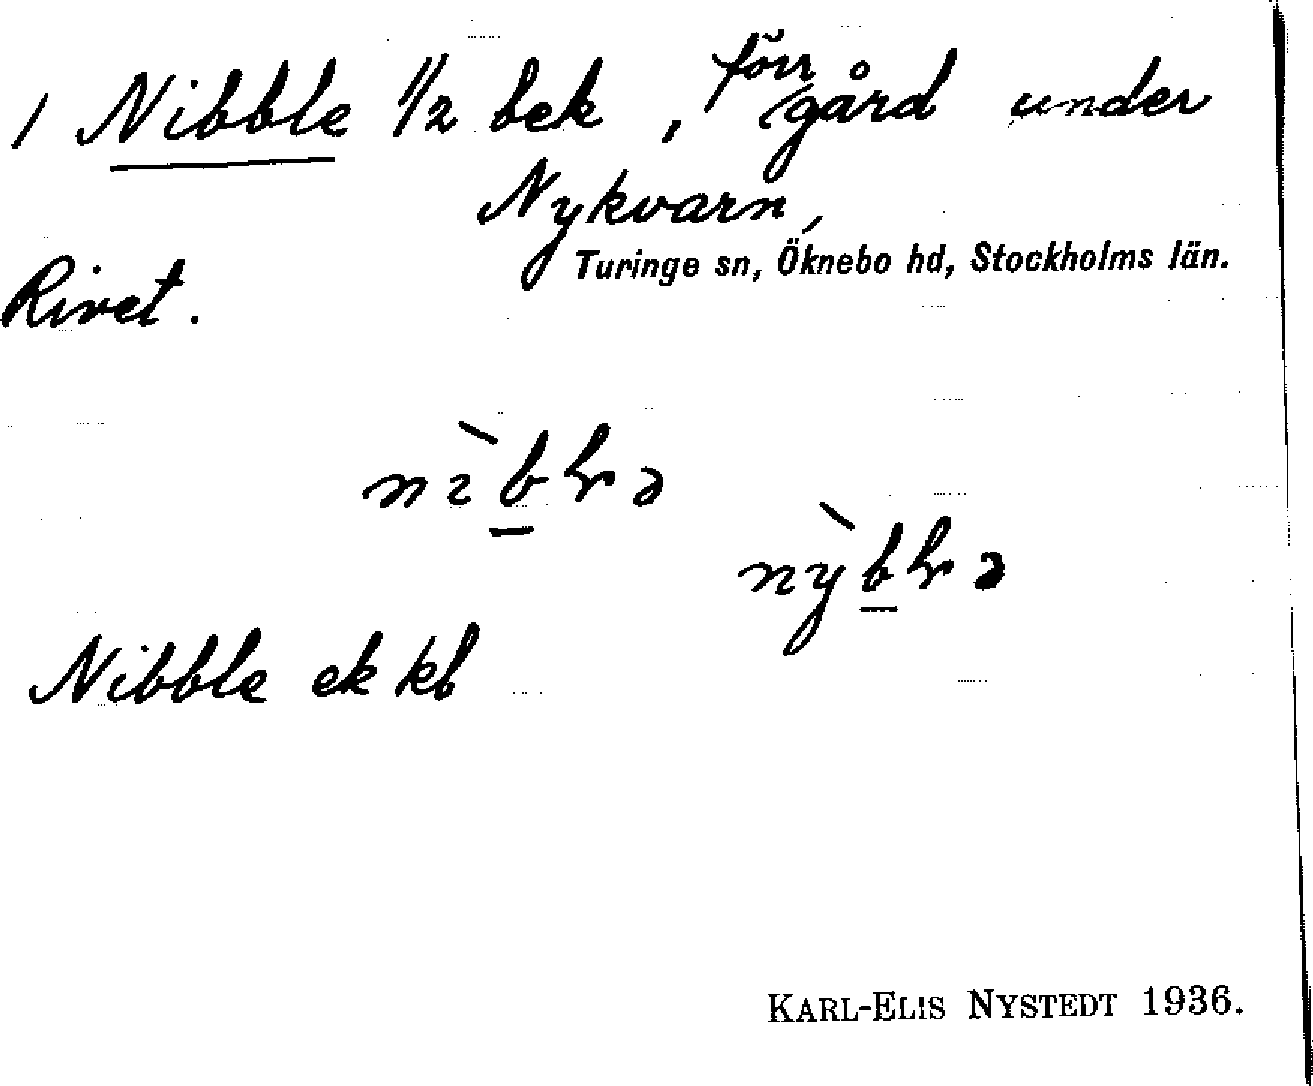 1 Nibble 1/2 bek, förr gård under
Nykvarn,
Turinge sn, Öknebo hd, Stockholms län.
Rivet.
nìblə
nỳblə
Nibble ek kb
KARL-ELIS NYSTEDT 1936.